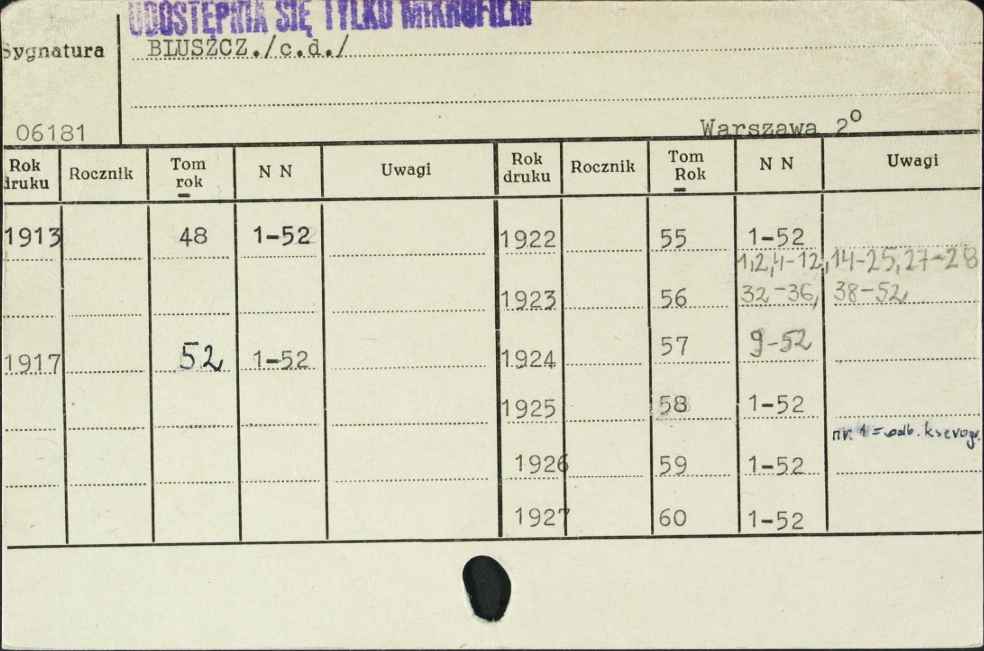 UDOSTĘPNIA SIĘ TYLKO MIKROFILM
Sygnatura BLUSZCZ./c.d./
06181 Warszawa 2°
Rok druku Rocznik Tom rok N N Uwagi Rok druku Rocznik Tom Rok N N Uwagi
1913 48 1-52 1922 55 1-52
1,2,4-12,14-25,27-28
1923 56 32-36, 38-52
1917 52 1-52 1924 57 9-52
1925 58 1-52
nr. 1 = odb. kserogr.
1926 59 1-52
1927 60 1-52